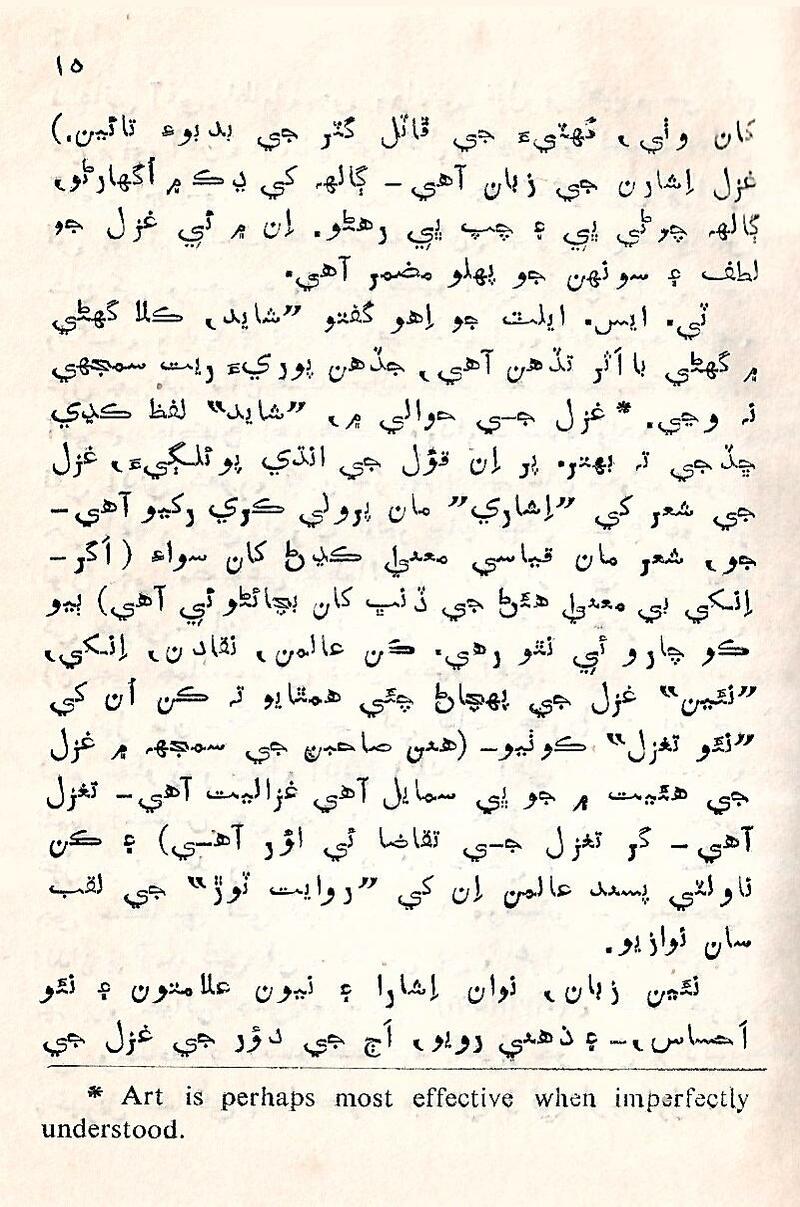 ۱۵
کان وٺي، گهٽيءَ جي ڦاٽل گٽر جي بدبوءِ تائين.)
غزل اِشارن جي زبان آهي – ڳالهه کي ڍڪ ۾ اُگهاڙڻو،
ڳالهه چوڻي ٻي ۽ چپ ٻي رهڻو. اِن ۾ ئي غزل جو
لطف ۽ سونهن جو پهلو مضمر آهي.
ٽي. ايس. ايلٽ جو اِهو گفتو ”شايد، ڪلا گهڻي
۾ گهڻي بااَثر تڏهن آهي، جڏهن پوريءَ ريت سمجهي
نہ وڃي. * غزل جي حوالي ۾، ”شايد“ لفظ ڪڍي
ڇڏجي تہ بهتر. پر اِن قؤل جي انڌي پوئلڳيءَ، غزل
جي شعر کي ”اِشاري” مان پرولي ڪري رکيو آهي –
جو، شعر مان قياسي معنيٰ ڪڍڻ کان سواءِ (اَگر –
اِنکي بي معنيٰ هئڻ جي ڏنڀ کان بچائڻو ئي آهي) ٻيو
ڪو چارو ئي نٿو رهي. ڪن عالمن، نقادن، اِنکي،
”نئين“ غزل جي پهچاڻ چئي همٿايو تہ ڪن اُن کي
”نئو تغزل“ ڪوٺيو – (هنن صاحبن جي سمجهہ ۾ غزل
جي هئيت ۾ جو ٻي سمايل آهي غزاليت آهي – تغزل
آهي – گر تغزل جي تقاضا ئي اؤر آهي) ۽ ڪن
ناولٽي پسند عالمن اِن کي ”روايت ٽوڙ“ جي لقب
سان نوازيو.
نئين زبان، نوان اِشارا ۽ نيون علامتون ۽ نئو
اَحساس، – ۽ ذهني رويو، اَڄ جي دؤر جي غزل جي
* Art is perhaps most effective when imperfectly
understood.